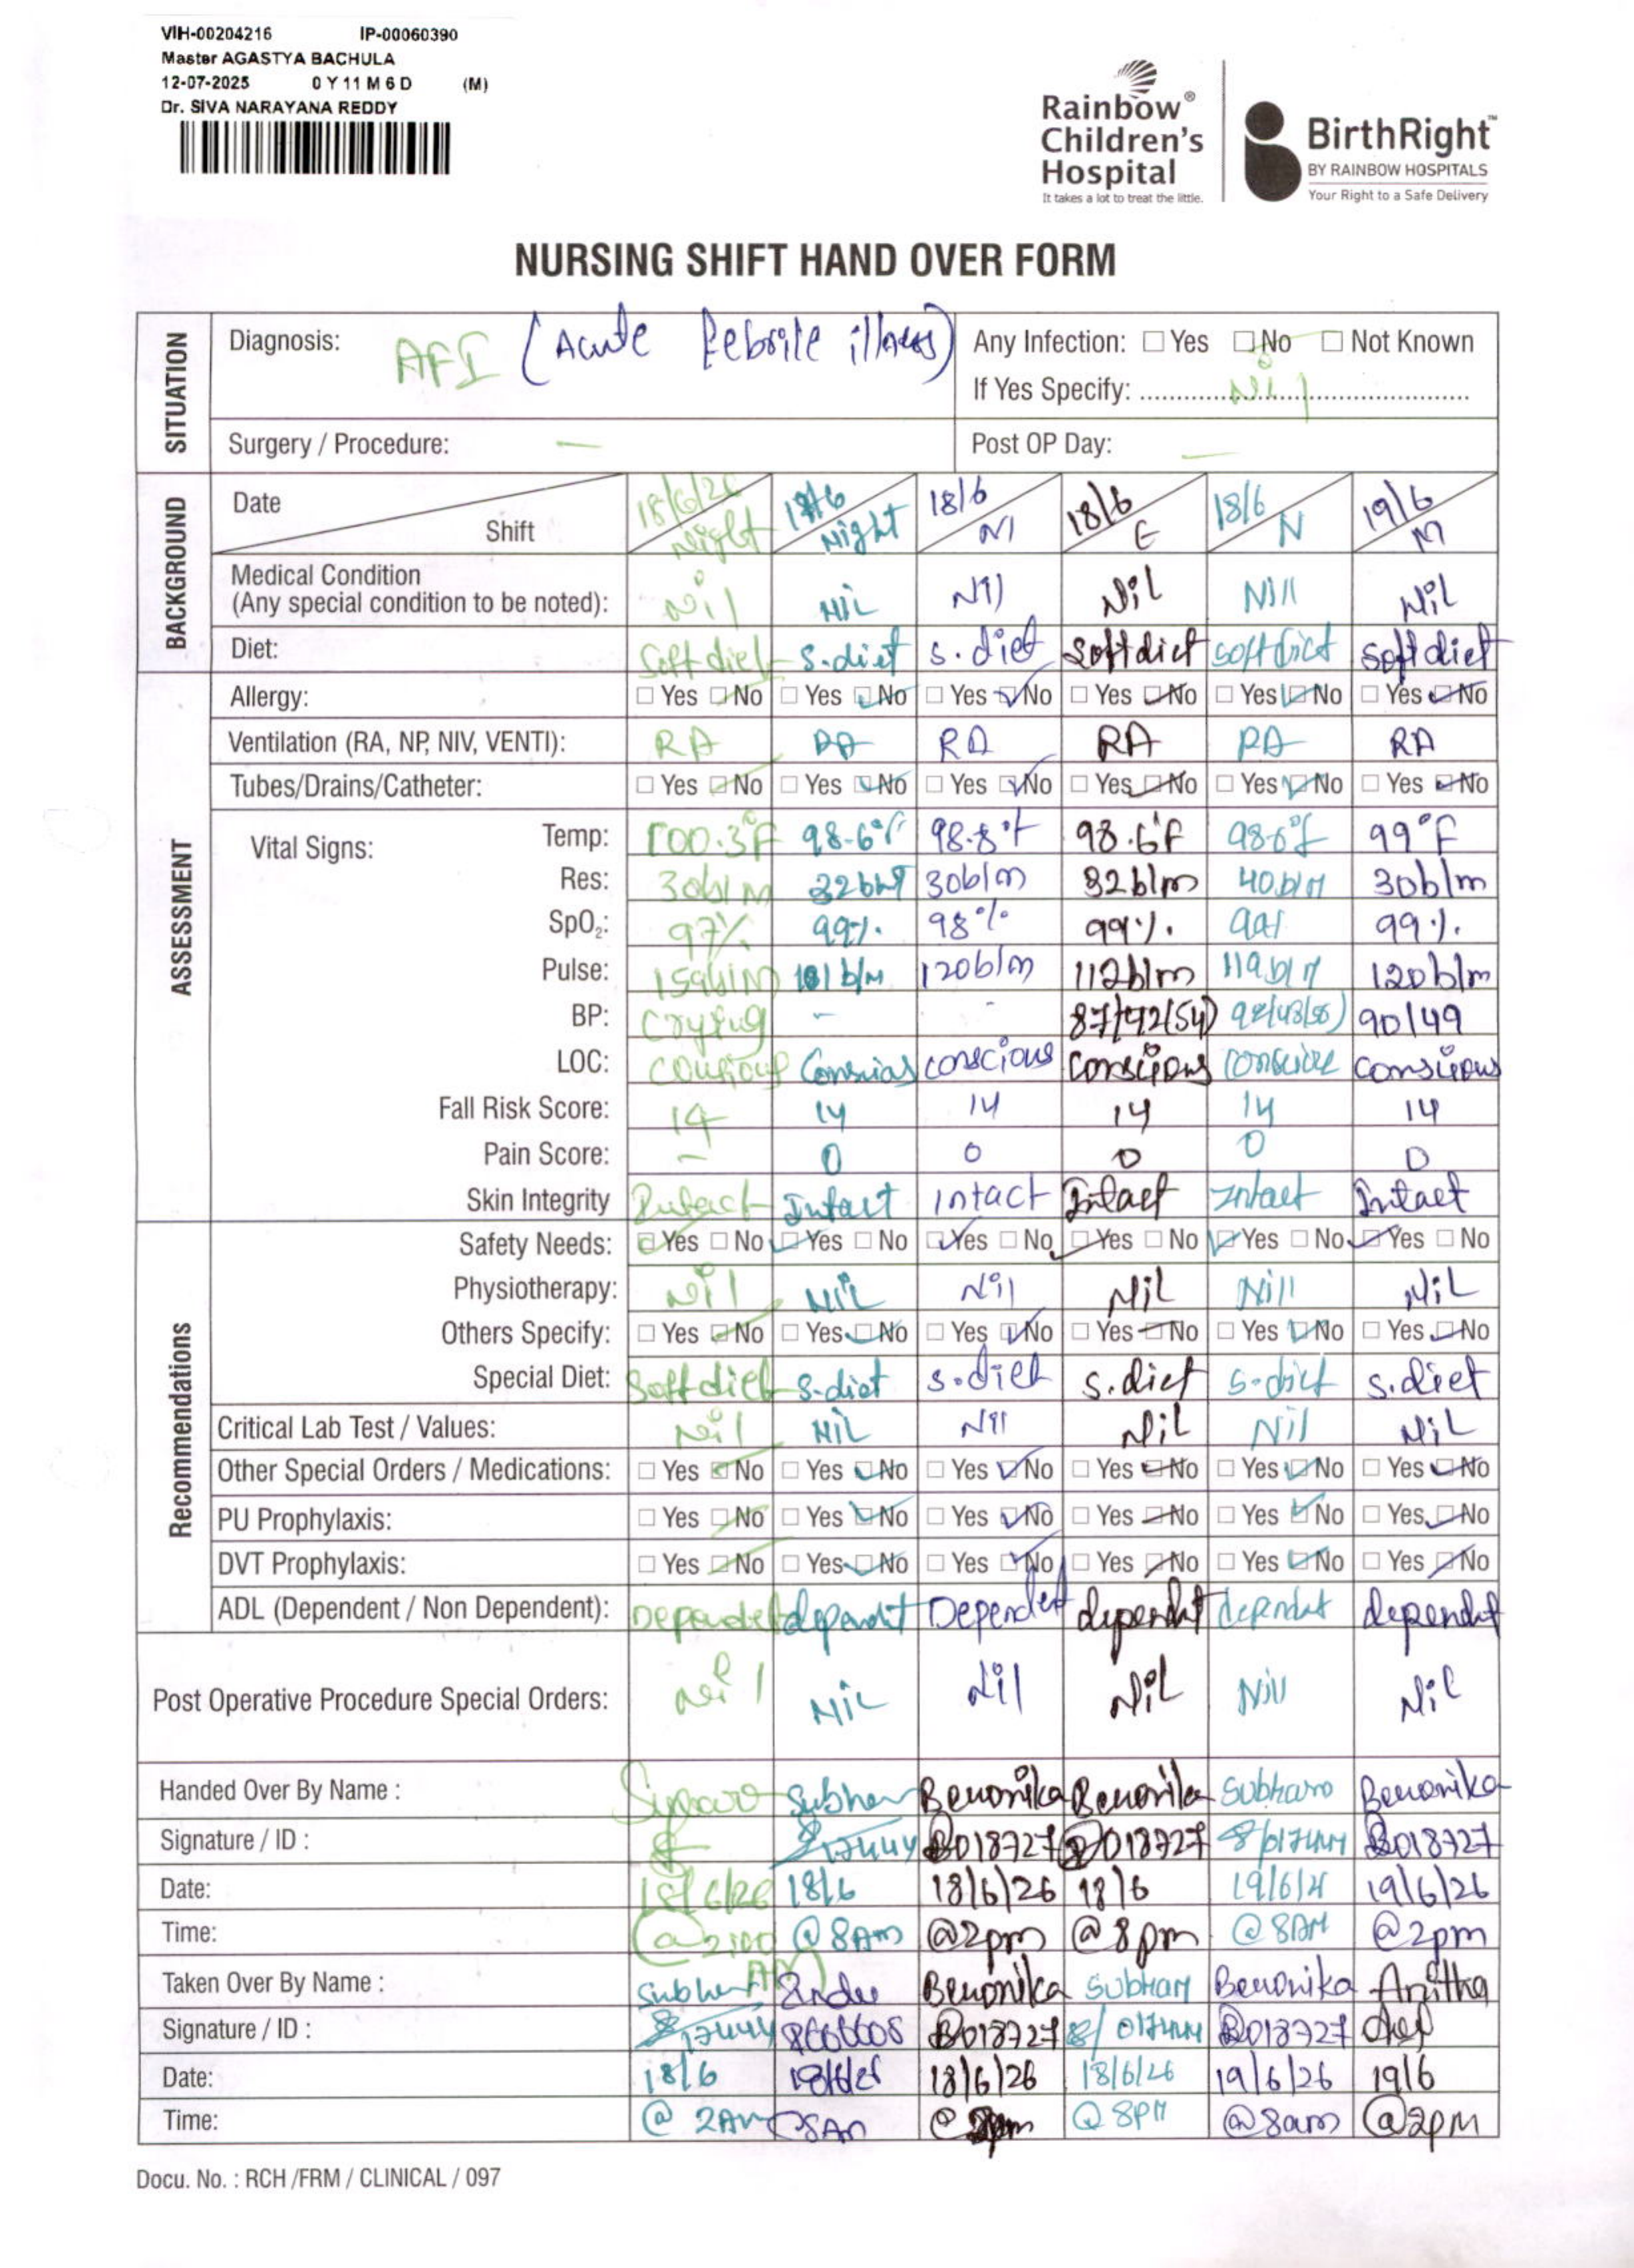 VIH-00204216 IP-00060390
Master AGASTYA BACHULA
12-07-2025 0 Y 11 M 6 D (M)
Dr. SIVA NARAYANA REDDY
Rainbow®
Children's
Hospital
It takes a lot to treat the little.
BirthRight™
BY RAINBOW HOSPITALS
Your Right to a Safe Delivery
NURSING SHIFT HAND OVER FORM
SITUATION
Diagnosis: AFI (Acute Febrile illness)
Any Infection: Yes No Not Known
If Yes Specify: Nil
Surgery / Procedure: —
Post OP Day: —
BACKGROUND
Date 18/6/26 18/6 18/6 18/6 19/6
Shift Night Night M E N M
Medical Condition
(Any special condition to be noted): Nil NIL Nil Nil Nill Nil
Diet: Soft diet s.diet s.diet Softdiet soft diet soft diet
ASSESSMENT
Allergy: Yes No Yes No Yes No Yes No Yes No Yes No
Ventilation (RA, NP, NIV, VENTI): RA RA RA RA RA RA
Tubes/Drains/Catheter: Yes No Yes No Yes No Yes No Yes No Yes No
Vital Signs:
Temp: 100.3°F 98.6°F 98.8°F 98.6°F 98.6°F 99°F
Res: 30b/M 32b/M 30b/m 32b/m 40b/M 30b/m
SpO₂: 97% 99% 98% 99% 99% 99%
Pulse: 101 b/M 120b/m 112b/m 119b/M 120b/m
BP: Crying - - (54) 90/49
LOC: conscious conscious conscious conscious
Fall Risk Score: 14 14 14 14 14 14
Pain Score: - 0 0 0 0 0
Skin Integrity Intact Intact Intact Intact Intact Intact
Recommendations
Safety Needs: Yes No Yes No Yes No Yes No Yes No Yes No
Physiotherapy: Nil NIL Nil Nil Nill NiL
Others Specify: Yes No Yes No Yes No Yes No Yes No Yes No
Special Diet: Soft diet s.diet s.diet s.diet s.diet s.diet
Critical Lab Test / Values: Nil NIL Nil NiL Nil NiL
Other Special Orders / Medications: Yes No Yes No Yes No Yes No Yes No Yes No
PU Prophylaxis: Yes No Yes No Yes No Yes No Yes No Yes No
DVT Prophylaxis: Yes No Yes No Yes No Yes No Yes No Yes No
ADL (Dependent / Non Dependent): Dependent dependent Dependent dependent dependent dependent
Post Operative Procedure Special Orders: Nil NiL Nil NiL Nill Nil
Handed Over By Name : Benonika Benonika Subham Benonika
Signature / ID : B018727 018727 B018727
Date: 18/6/26 18/6 18/6/26 18/6 19/6/26
Time: @8AM @2pm @8pm @8AM @2pm
Taken Over By Name : Benonika Subham Benonika Anitha
Signature / ID : B018727 B018727
Date: 18/6 18/6/26 18/6/26 19/6/26 19/6
Time: @ 2AM 8AM @ 8PM @8am @2pM
Docu. No. : RCH /FRM / CLINICAL / 097